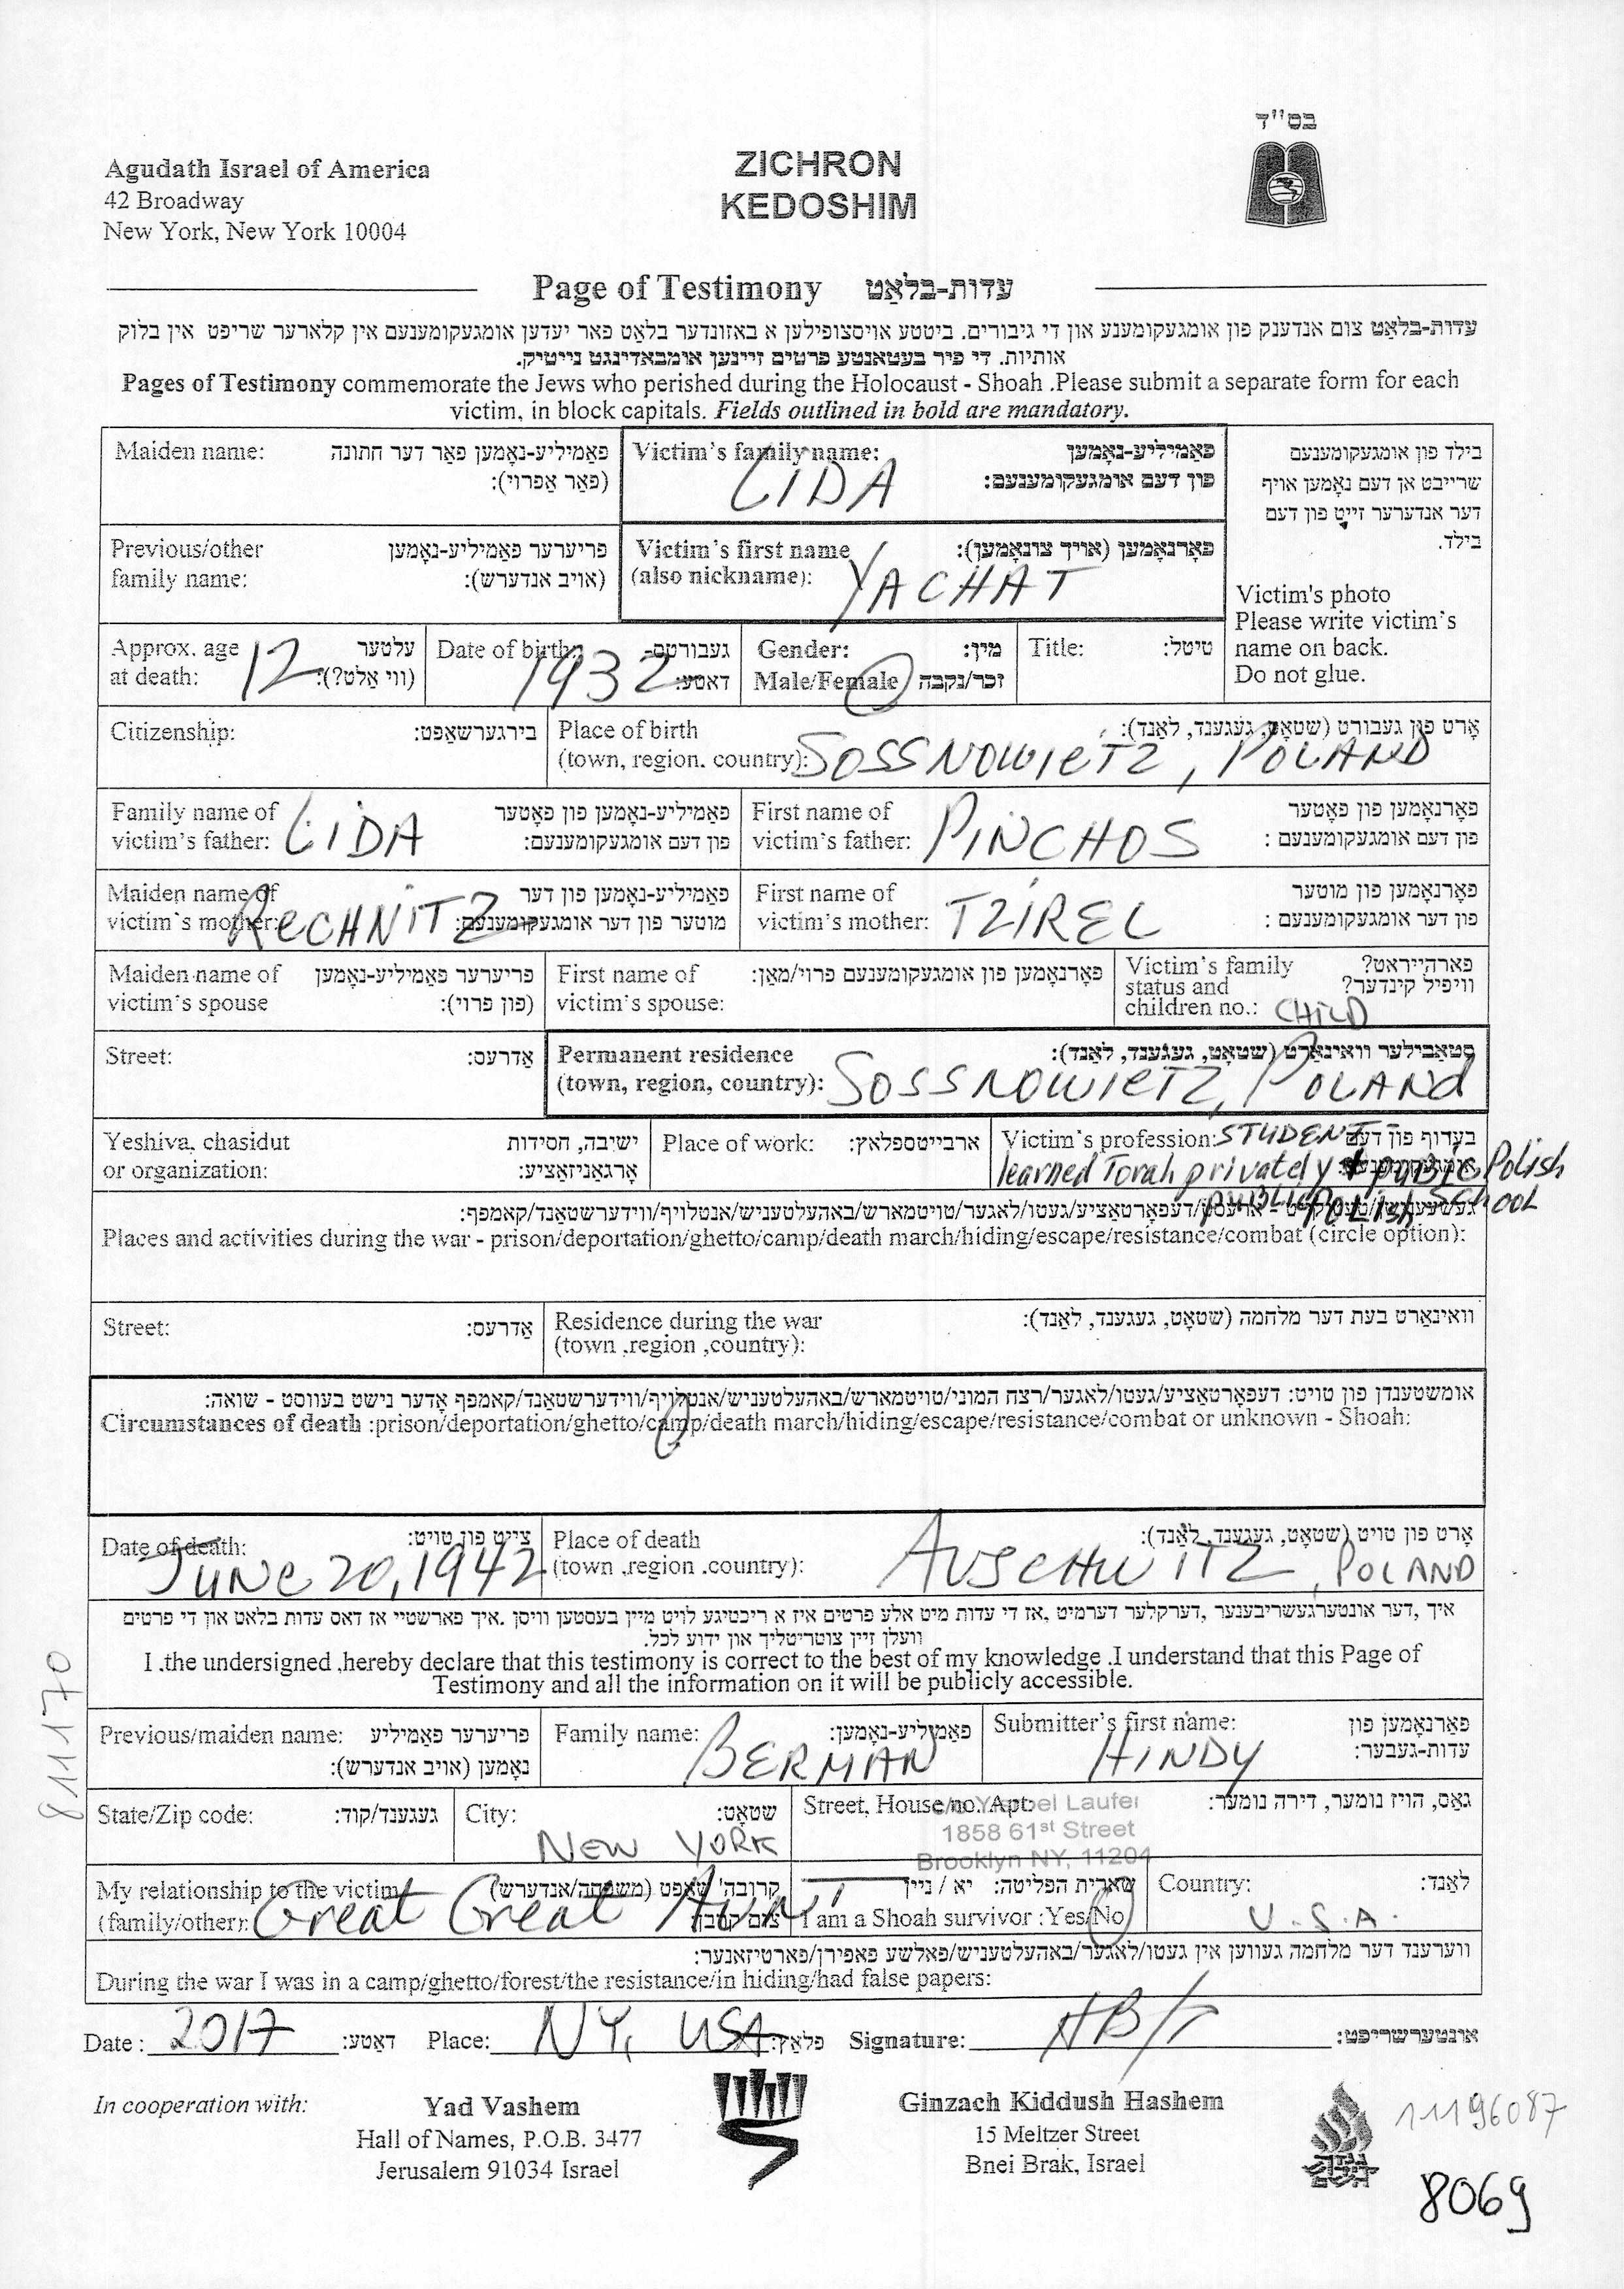 בס"ד
Agudath Israel of America
42 Broadway
New York, New York 10004
ZICHRON
KEDOSHIM
Page of Testimony עדות-בלאַט
עדות-בלאַט צום אנדענק פון אומגעקומענע און די גיבורים. ביטטע אויסצופילען א באזונדער בלאט פאר יעדען אומגעקומענעם אין קלארער שריפט אין בלוק
אותיות. די פיר בעטאנטע פרטים זיינען אומבאדינגט נייטיק.
Pages of Testimony commemorate the Jews who perished during the Holocaust - Shoah .Please submit a separate form for each
victim, in block capitals. Fields outlined in bold are mandatory.
Maiden name: פאַמיליע-נאָמען פאַר דער חתונה
(פאַר אַפרוי):
Victim's family name: פאַמיליע-נאָמען
פון דעם אומגעקומענעם:
LIDA
בילד פון אומגעקומענעם
שרייבט אן דעם נאָמען אויף
דער אנדערער זייט פון דעם
בילד.
Victim's photo
Please write victim's
name on back.
Do not glue.
Previous/other פריערער פאַמיליע-נאָמען
family name: (אויב אנדערש):
Victim's first name פאָרנאָמען (אויך צונאָמען):
(also nickname): YACHAT
Approx. age עלטער
at death: 12 (ווי אַלט?):
Date of birth: געבורטס-
1932 דאטע:
Gender: מין:
Male/Female זכר/נקבה
Title: טיטל:
Citizenship: בירגערשאַפט:
Place of birth אָרט פון געבורט (שטאָט, געגענד, לאַנד):
(town, region. country): SOSSNOWIETZ, POLAND
Family name of פאַמיליע-נאָמען פון פאָטער
victim's father: LIDA פון דעם אומגעקומענעם:
First name of פאָרנאָמען פון פאָטער
victim's father: PINCHOS פון דעם אומגעקומענעם :
Maiden name of פאַמיליע-נאָמען פון דער
victim's mother: RECHNITZ מוטער פון דער אומגעקומענעם:
First name of פאָרנאָמען פון מוטער
victim's mother: TZIREL פון דער אומגעקומענעם :
Maiden name of פריערער פאַמיליע-נאָמען
victim's spouse (פון פרוי):
First name of פאָרנאָמען פון אומגעקומענעם פרוי/מאַן:
victim's spouse:
Victim's family פארהייראט?
status and וויפיל קינדער?
children no.: CHILD
Street: אַדרעס:
Permanent residence סטאַבילער וואוינאָרט (שטאָט, געגענד, לאַנד):
(town, region, country): SOSSNOWIETZ, POLAND
Yeshiva, chasidut ישיבה, חסידות
or organization: אָרגאַניזאַציע:
Place of work: ארבייטספלאץ:
Victim's profession: STUDENT - בעדוף פון דעם
learned Torah privately + public Polish
PUBLIC POLISH SCHOOL
דעפּאָרטאַציע/געטו/לאגער/טויטמארש/באהעלטעניש/אנטלויף/ווידערשטאַנד/קאמפף:
Places and activities during the war - prison/deportation/ghetto/camp/death march/hiding/escape/resistance/combat (circle option):
Street: אַדרעס:
Residence during the war וואוינאָרט בעת דער מלחמה (שטאָט, געגענד, לאַנד):
(town ,region ,country):
אומשטענדן פון טויט: דעפּאָרטאַציע/געטו/לאגער/רצח המוני/טויטמארש/באהעלטעניש/אנטלויף/ווידערשטאַנד/קאמפף אָדער נישט בעוואוסט - שואה:
Circumstances of death :prison/deportation/ghetto/camp/death march/hiding/escape/resistance/combat or unknown - Shoah:
Date of death: צייט פון טויט:
JUNE 20, 1942
Place of death אָרט פון טויט (שטאָט, געגענד, לאַנד):
(town ,region .country): AUSCHWITZ, POLAND
איך ,דער אונטערגעשריבענער ,דערקלער דערמיט ,אז די עדות מיט אלע פרטים איז א ריכטיגע לויט מיין בעסטען וויסן .איך פארשטיי אז דאס עדות בלאט און די פרטים
וועלן זיין צוטריטליך און ידוע לכל.
I .the undersigned ,hereby declare that this testimony is correct to the best of my knowledge .I understand that this Page of
Testimony and all the information on it will be publicly accessible.
Previous/maiden name: פריערער פאַמיליע
נאָמען (אויב אנדערש):
Family name: פאַמיליע-נאָמען:
BERMAN
Submitter's first name: פאַרנאָמען פון
HINDY עדות-געבער:
State/Zip code: געגענד/קוד:
City: שטאָט:
NEW YORK
Street, House no. Apt: גאס, הויז נומער, דירה נומער:
Laufer
1858 61st Street
Brooklyn NY, 11204
My relationship to the victim קרובה'שאַפט (משפּחה/אנדערש)
(family/other): Great Great Aunt
שארית הפליטה: יא / ניין
I am a Shoah survivor :Yes/No
Country: לאנד:
U.S.A.
ווערענד דער מלחמה געווען אין געטו/לאגער/באהעלטעניש/פאלשע פאפירן/פארטיזאנער:
During the war I was in a camp/ghetto/forest/the resistance/in hiding/had false papers:
Date : 2017 דאטע: Place: NY, USA פלאַץ: Signature: אונטערשריפט:
In cooperation with:
Yad Vashem
Hall of Names, P.O.B. 3477
Jerusalem 91034 Israel
Ginzach Kiddush Hashem
15 Meltzer Street
Bnei Brak, Israel
11196087
8069
811170